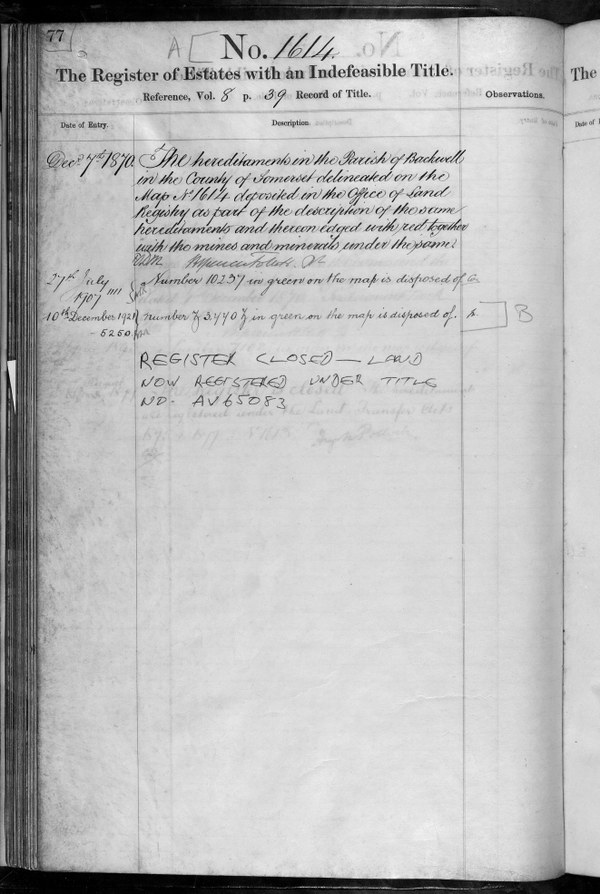 77
A [
No. 1614.
The Register of Estates with an Indefeasible Title.
Reference, Vol. 8 p. 39 Record of Title.
Observations.
Date of Entry.
Description.
Decr 7th 1870.
The hereditaments in the Parish of Backwell
in the County of Somerset delineated on the
Map No 1614 deposited in the Office of Land
Registry as part of the description of the same
hereditaments and thereon edged with red together
with the mines and minerals under the same.
27th July
1907
Number 10237 in green on the map is disposed of
10th December 1921
5250
number 33440 in green on the map is disposed of.
] B
REGISTER CLOSED — LAND
NOW REGISTERED UNDER TITLE
NO. AV65083
The
Date of